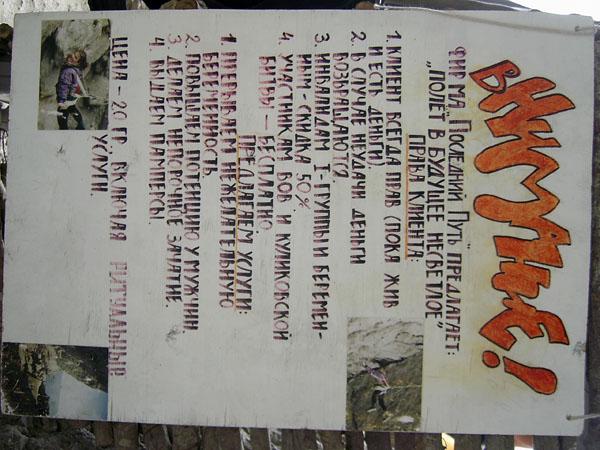 ВНИМАНИЕ!
ФИРМА „ПОСЛЕДНИЙ ПУТЬ" ПРЕДЛАГАЕТ:
„ПОЛЁТ В БУДУЩЕЕ НЕСВЕТЛОЕ"
ПРАВА КЛИЕНТА:
1. КЛИЕНТ ВСЕГДА ПРАВ (ПОКА ЖИВ
И ЕСТЬ ДЕНЬГИ).
2. В СЛУЧАЕ НЕУДАЧИ ДЕНЬГИ
ВОЗВРАЩАЮТСЯ.
3. ИНВАЛИДАМ I-ГРУППЫ И БЕРЕМЕН-
НЫМ - СКИДКА 50%.
4. УЧАСТНИКАМ ВОВ И КУЛИКОВСКОЙ
БИТВЫ - БЕСПЛАТНО.
ПРЕДЛАГАЕМ УСЛУГИ:
1. ПРЕРЫВАЕМ НЕЖЕЛАТЕЛЬНУЮ
БЕРЕМЕННОСТЬ.
2. ПОВЫШАЕМ ПОТЕНЦИЮ У МУЖЧИН.
3. ДЕЛАЕМ НЕПОРОЧНОЕ ЗАЧАТИЕ.
4. ВЫДАЕМ ПАМПЕРСЫ.
ЦЕНА - 20 ГР. ВКЛЮЧАЯ РИТУАЛЬНЫЕ
УСЛУГИ.